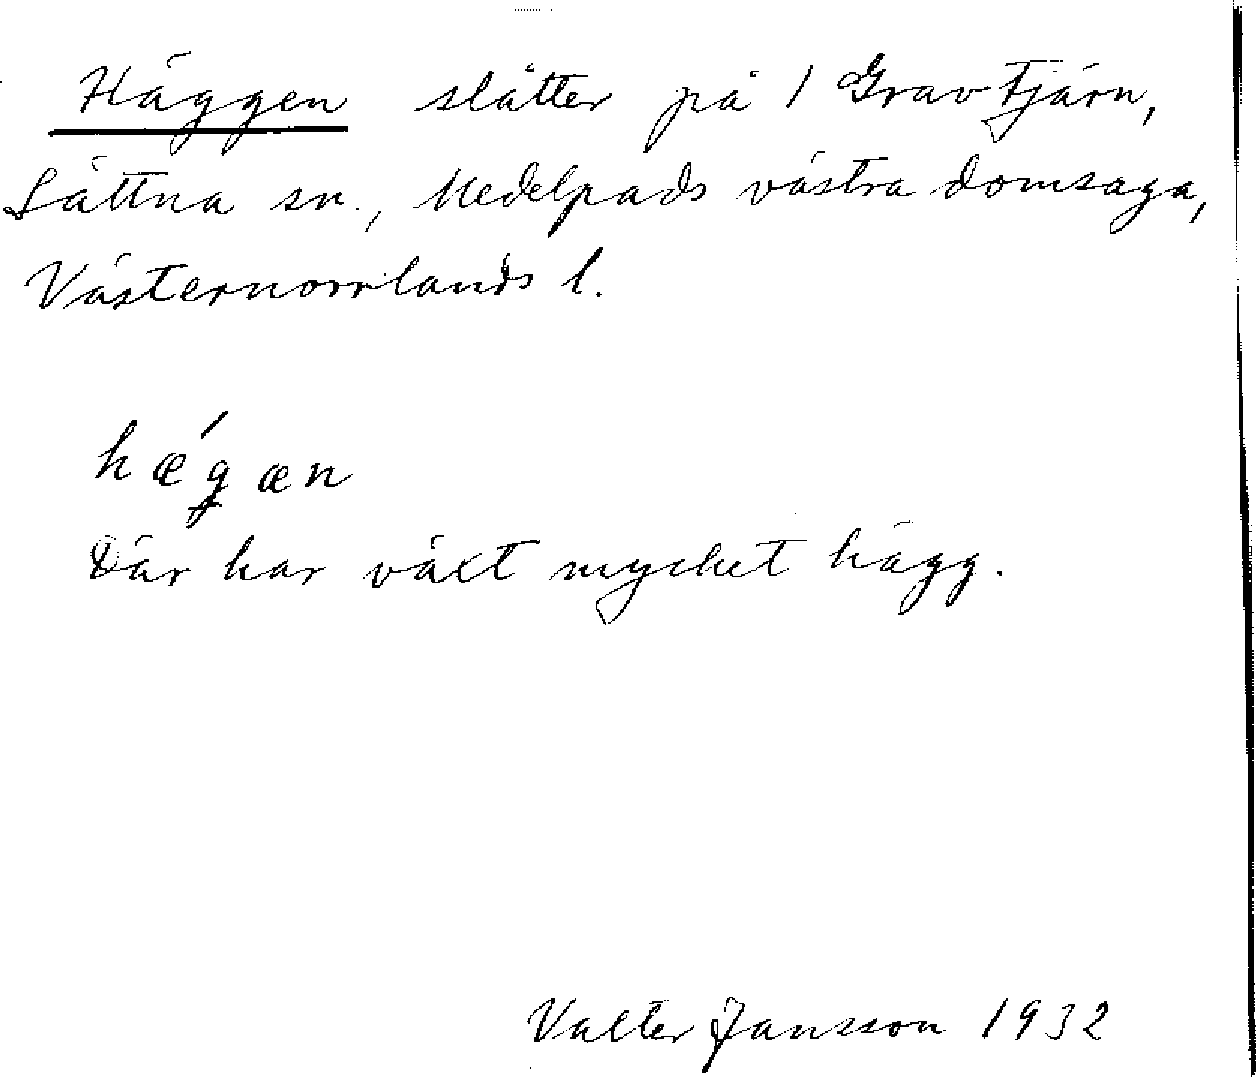 Häggen slåtter på 1 Gravtjärn,
Sättna sn., Medelpads västra domsaga,
Västernorrlands l.
hǽgæn
Där har växt mycket hägg.
Valter Jansson 1932